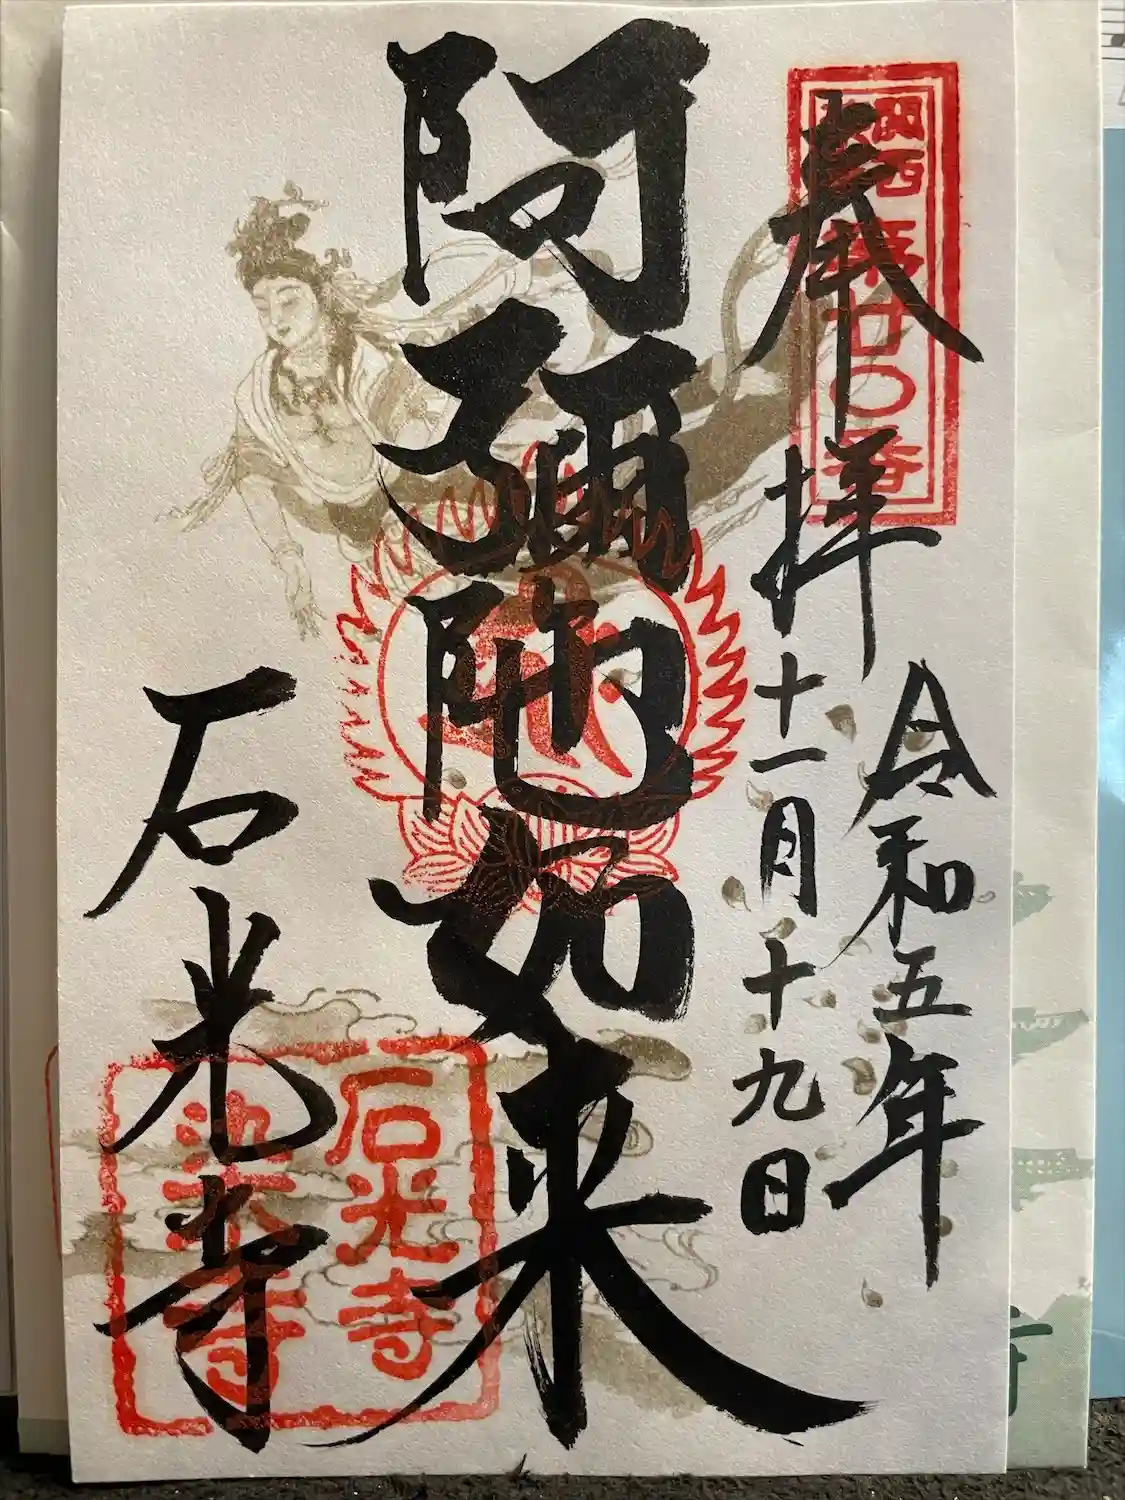 関西
第廿〇番
奉拝
令和五年
十一月十九日
阿彌陀如来
石光寺
石光寺
染寺